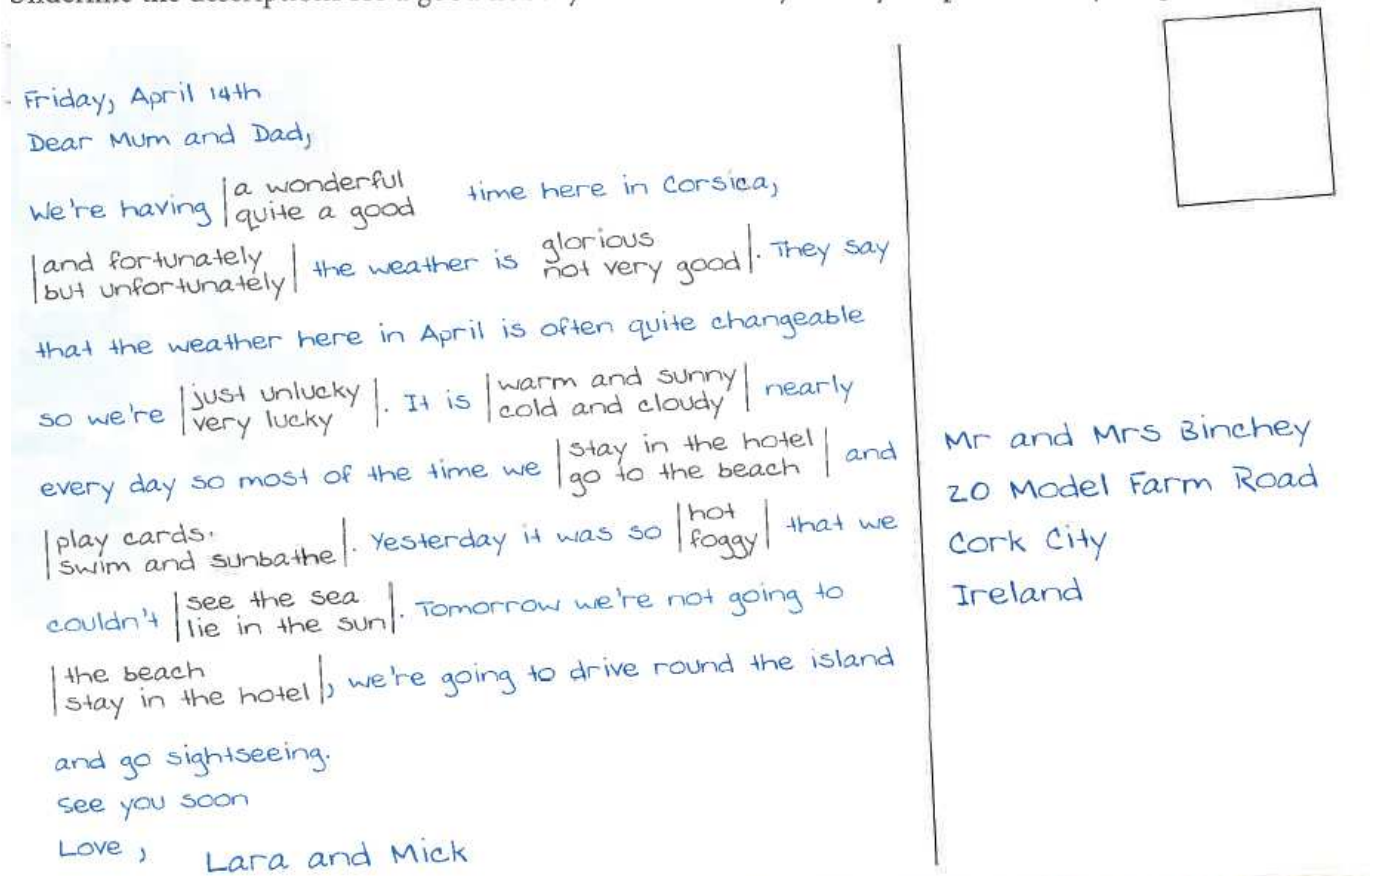 Friday, April 14th
Dear Mum and Dad,
We're having |a wonderful
quite a good time here in Corsica,
|and fortunately
but unfortunately| the weather is glorious
not very good|. They say
that the weather here in April is often quite changeable
so we're |just unlucky
very lucky|. It is |warm and sunny
cold and cloudy| nearly
every day so most of the time we |stay in the hotel
go to the beach| and
|play cards.
swim and sunbathe|. Yesterday it was so |hot
foggy| that we
couldn't |see the sea
lie in the sun|. Tomorrow we're not going to
|the beach
stay in the hotel|, we're going to drive round the island
and go sightseeing.
See you soon
Love,
Lara and Mick
Mr and Mrs Binchey
20 Model Farm Road
Cork City
Ireland